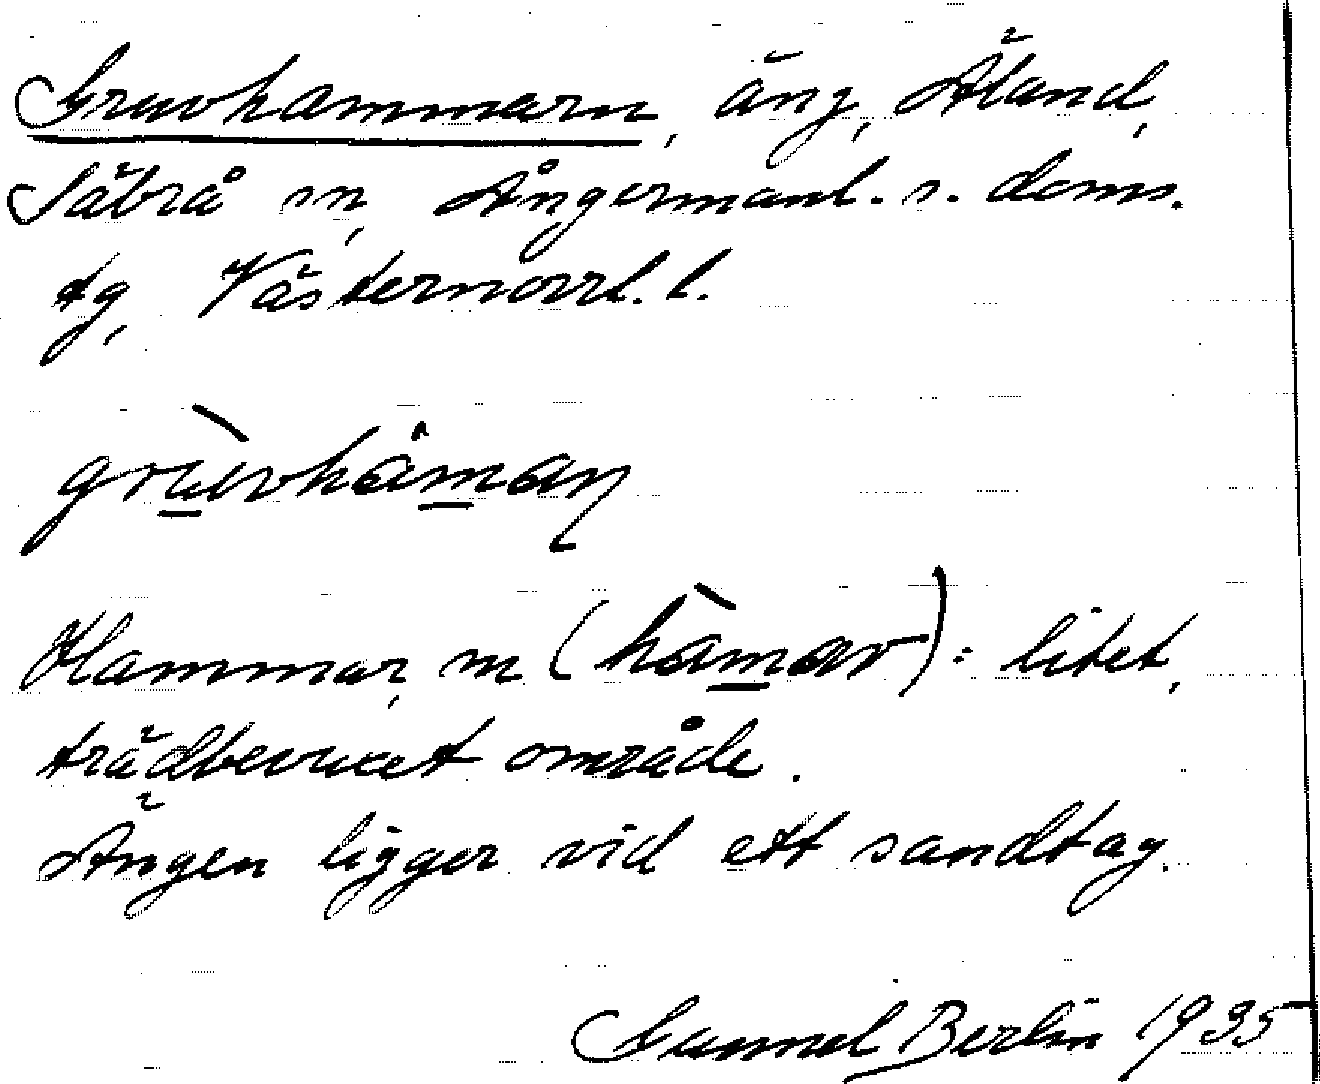 Gruvhammarn, äng, Äland,
Säbrå sn, Ångermanl. s. doms.
tg, Västernorrl. l.
grùvhåmaɳ
Hammar, m (hàmar): litet,
trädbevuxet område.
Ängen ligger vid ett sandtag.
Gunnel Berlin 1935